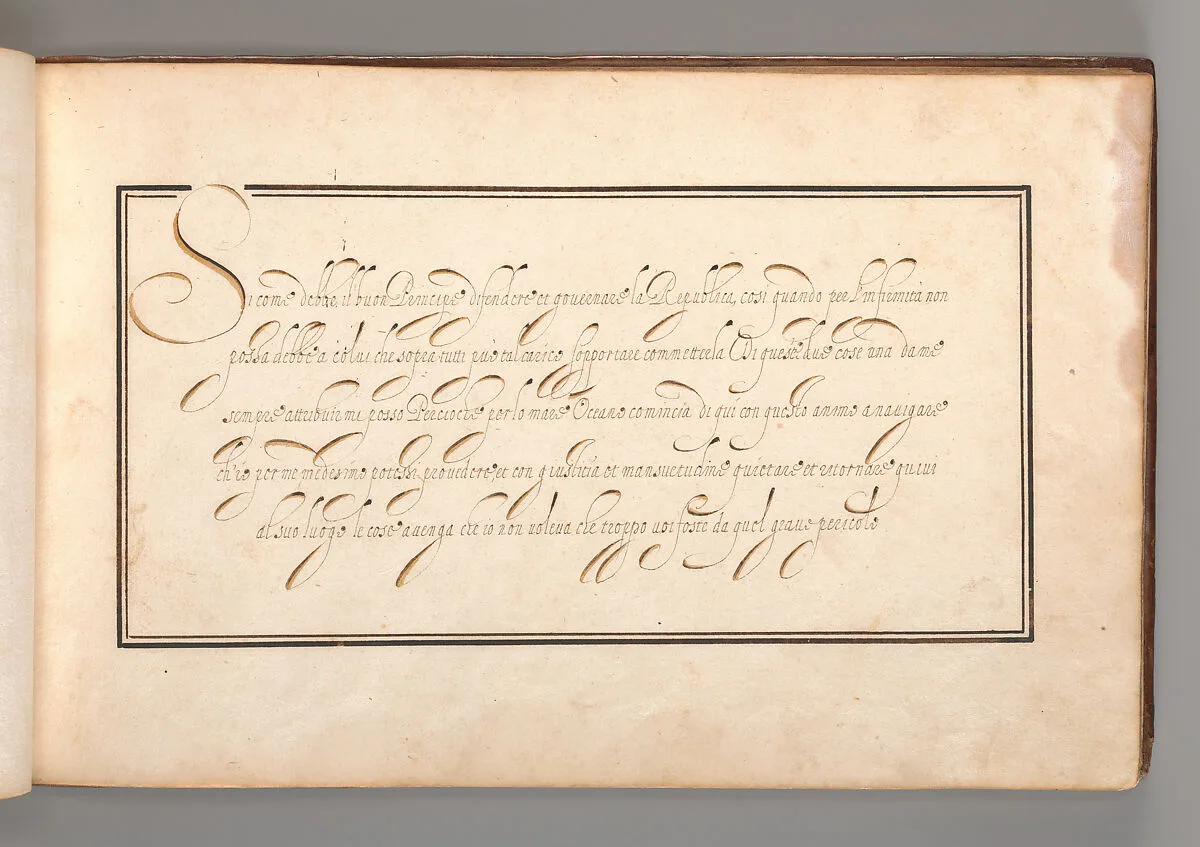 Si come debbe, il buon Principe difendere et governare la Republica, così quando per l'infirmità non
possa debbe a colui che sopra tutti può tal carico sopportare commetterla Di queste due cose una da me
sempre attribuirmi posso Percioche per lo mare Oceano comincia di qui con questo animo a navigare
ch'io per me medesimo potessi provedere, et con giustitia et mansuetudine quietare et ritornare quivi
al suo luogo le cose avenga che io non voleva che troppo voi foste da quel grave pericolo